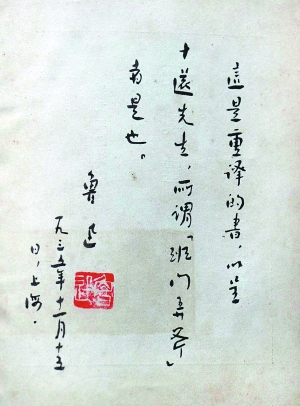 這是重译的書，以呈
十還先生，所谓「班门弄斧」
者是也。
魯迅
一九三五年十一月十五
日，上海。